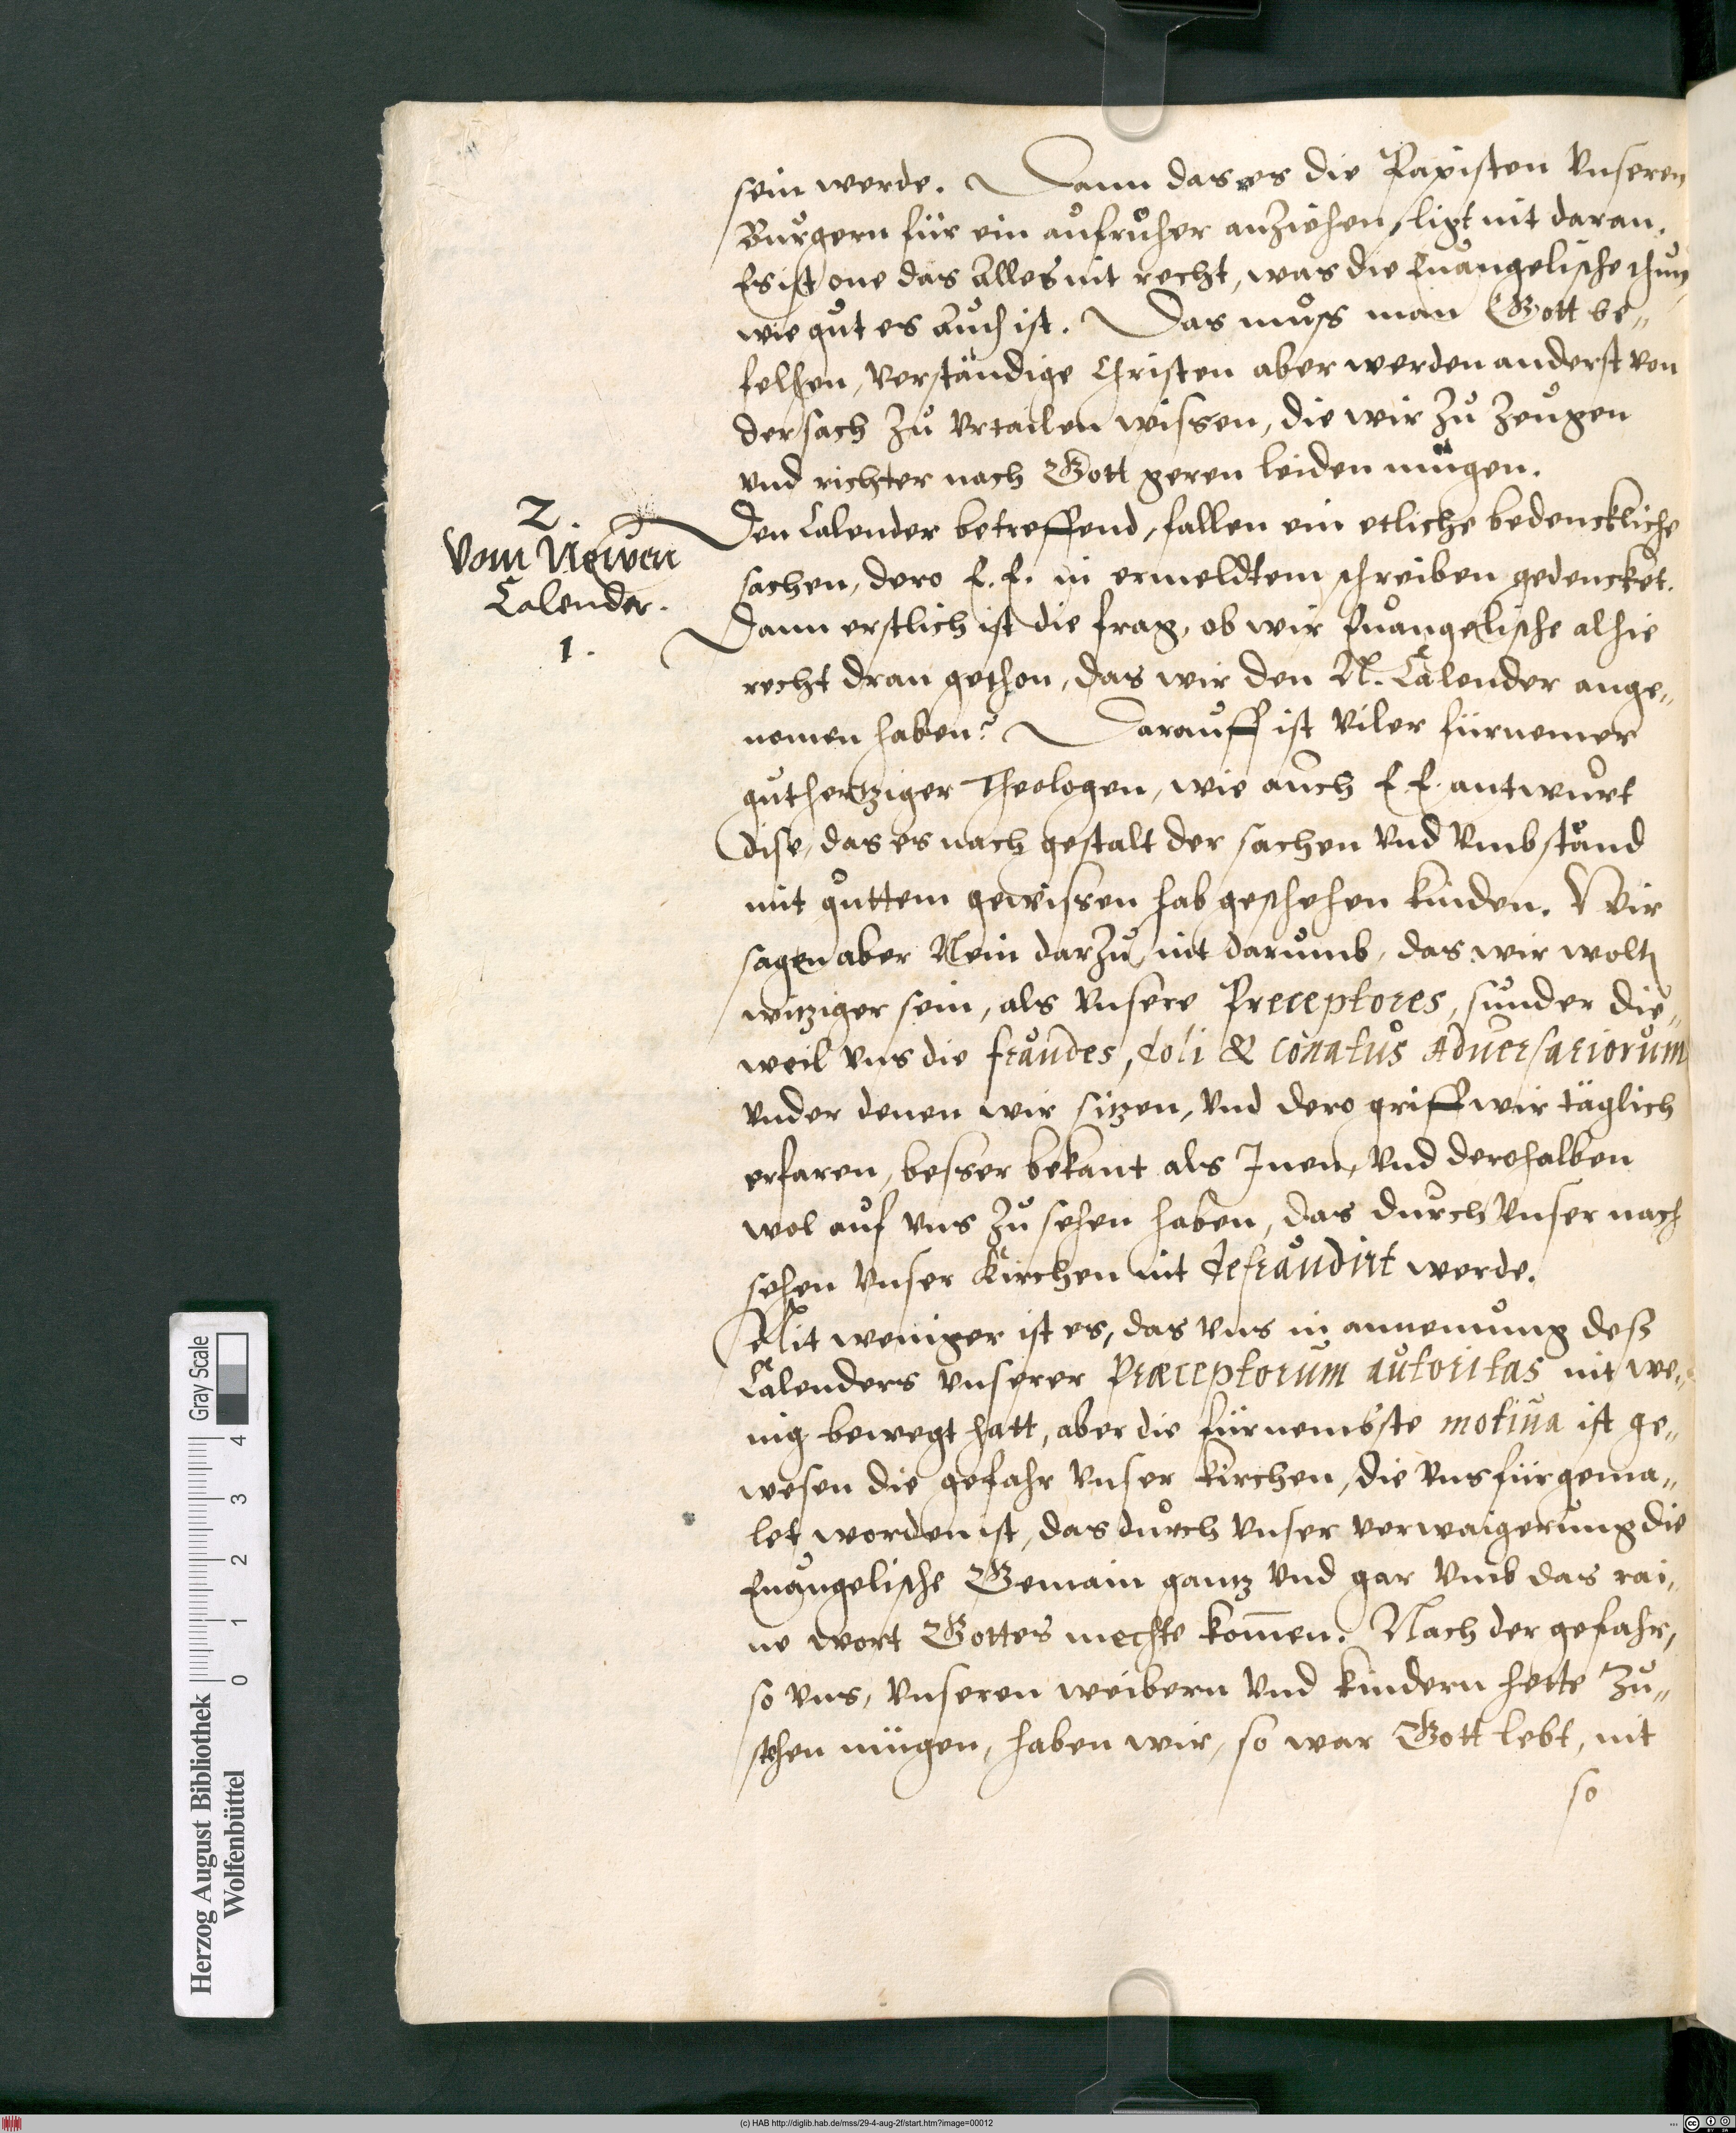 sein werde. Dann das es die Papisten vnseren
Burgern für ein aufruher anziehen, ligt nit daran.
Es ist one das Alles nit recht, was die Euangelische thun,
wie gut es Auch ist. Das muss man Gott be„
felhen, Verständige Christen aber werden anderst von
der sach zu vrtailen wissen, die wir zu zeugen
vnd richter nach Gott geren leiden mügen.
2.
Vom Newen
Calender.
1.
Den Calender betreffend, fallen ein etliche bedenckliche
sachen, dero E. E. in ermeldtem schreiben gedencket.
Dann erstlich ist die frag, ob wir Euangelische alhie
recht dran gethon, das wir den N. Calender ange„
nomen haben? Darauff ist viler fürnemer
guthertziger Theologen, wie auch E. E. antwurt
dise, das es nach gestalt der sachen vnd vmbständ
mit guttem gewissen hab geschehen kinden. Wir
sagen aber Nein darzu, nit darumb, das wir wolten
witziger sein, als vnsere Preceptores, sunder die„
weil vns die fraudes, doli & conatus Adversariorum
vnder denen wir sitzen, vnd dero griff wir täglich
erfaren, besser bekant als Inen, vnd derohalben
wol auf vns zu sehen haben, das durch vnser nach
sehen vnser Kirchen nit defraudirt werde.
Nit weniger ist es, das vns in annemung deß
Calenders vnserer Præceptorum autoritas nit we„
nig bewegt hatt, aber die fürnembste motiua ist ge„
wesen die gefahr vnser kirchen, die vns fürgema„
let worden ist, das durch vnser verwaigerung die
Euangelische Gemain gantz vnd gar vmb das rai„
ne wort Gottes mechte kom̄en. Nach der gefahr,
so vns, vnseren weibern vnd kindern hette zu„
stehen mügen, haben wir, so war Gott lebt, nit
so
Herzog August Bibliothek
Wolfenbüttel
Gray Scale
0 1 2 3 4
(c) HAB http://diglib.hab.de/mss/29-4-aug-2f/start.htm?image=00012